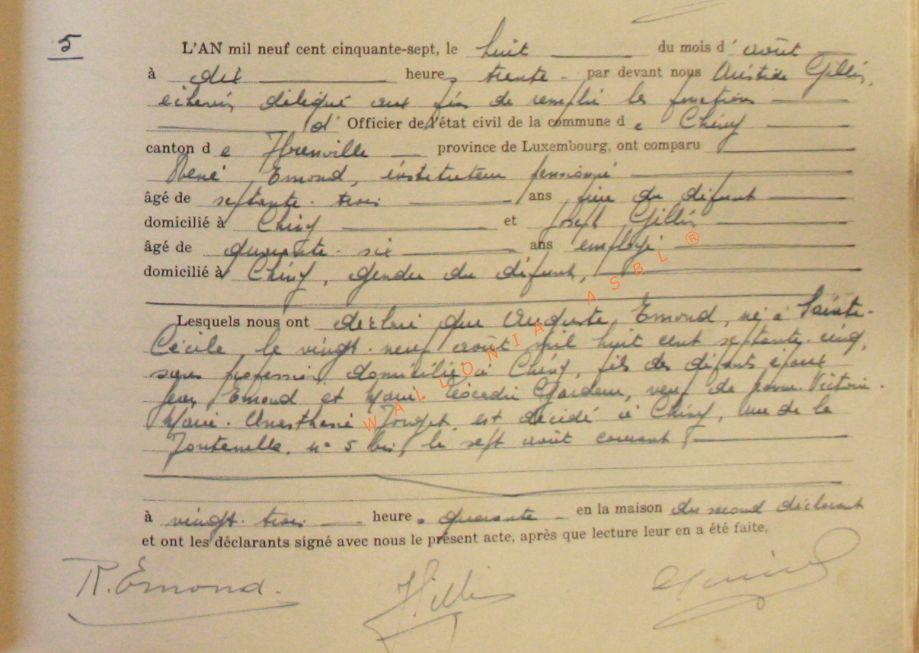 5
L'AN mil neuf cent cinquante-sept, le huit du mois d' août
à dix heures trente - par devant nous Aristide Gillis,
échevin délégué aux fins de remplir les fonctions
d' Officier de l'état civil de la commune de Chiny
canton de Florenville province de Luxembourg, ont comparu
René Emond, instituteur pensionné
âgé de septante-trois ans frère du défunt
domicilié à Chiny et Joseph Gillis
âgé de quarante-six ans employé
domicilié à Chiny, gendre du défunt,
Lesquels nous ont déclaré que Auguste Emond, né à Sainte-
Cécile, le vingt-neuf août mil huit cent septante-cinq,
sans profession, domicilié à Chiny, fils des défunts époux
Jean Emond et Marie Gardeur, veuf de Victoire
Marie-Anasthasie est décédé à Chiny, rue de la
Fontenelle, n° 5 bis, le sept août courant,
à vingt-trois heures quarante - en la maison du second déclarant
et ont les déclarants signé avec nous le présent acte, après que lecture leur en a été faite.
R. Emond. JGillis
WALLONIA ASBL ®